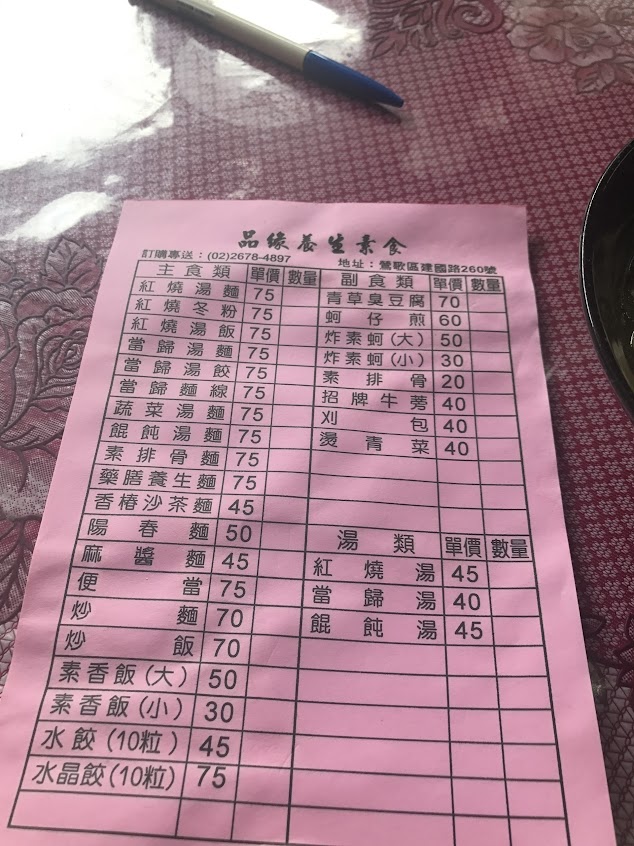 品緣養生素食
訂購專送：(02)2678-4897
地址：鶯歌區建國路260號
主食類 單價 數量
紅燒湯麵 75
紅燒冬粉 75
紅燒湯飯 75
當歸湯麵 75
當歸湯餃 75
當歸麵線 75
蔬菜湯麵 75
餛飩湯麵 75
素排骨麵 75
藥膳養生麵 75
香椿沙茶麵 45
陽春麵 50
麻醬麵 45
便當 75
炒麵 70
炒飯 70
素香飯(大) 50
素香飯(小) 30
水餃(10粒) 45
水晶餃(10粒) 75
副食類 單價 數量
青草臭豆腐 70
蚵仔煎 60
炸素蚵(大) 50
炸素蚵(小) 30
素排骨 20
招牌牛蒡 40
刈包 40
燙青菜 40
湯類 單價 數量
紅燒湯 45
當歸湯 40
餛飩湯 45